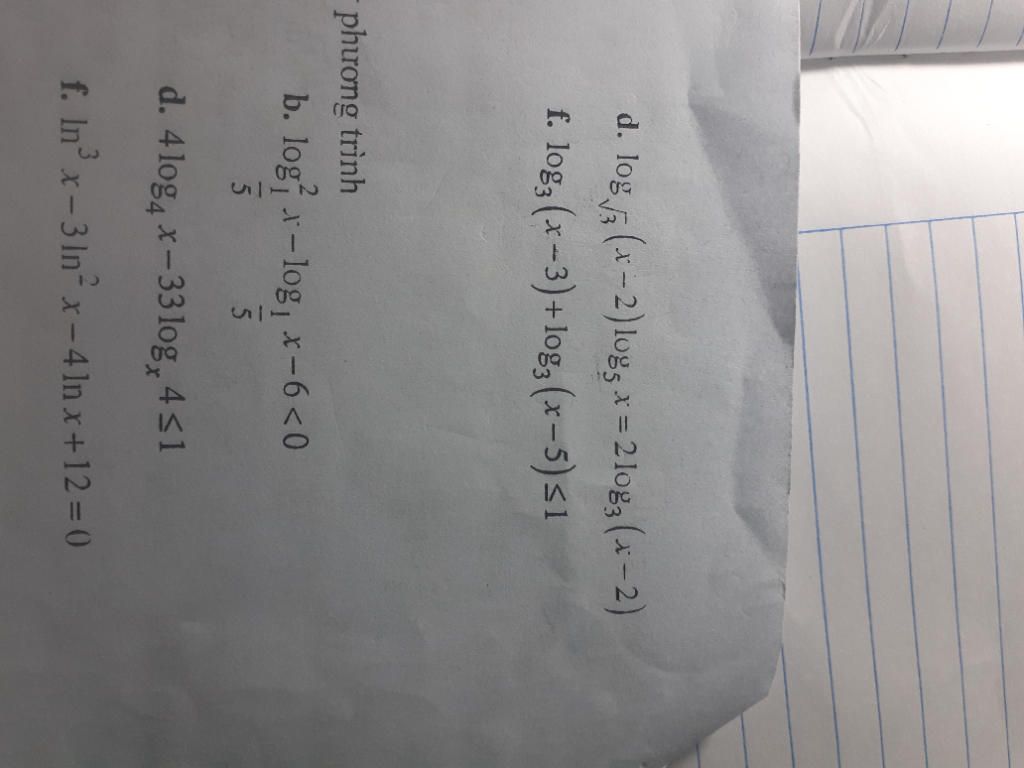 d. log_{√3}(x−2)log_5 x = 2log_3(x−2)
f. log_3(x−3)+log_3(x−5) ≤ 1
phương trình
b. log²_{1/5} x − log_{1/5} x − 6 < 0
d. 4log_4 x − 33log_x 4 ≤ 1
f. ln³ x − 3ln² x − 4ln x + 12 = 0